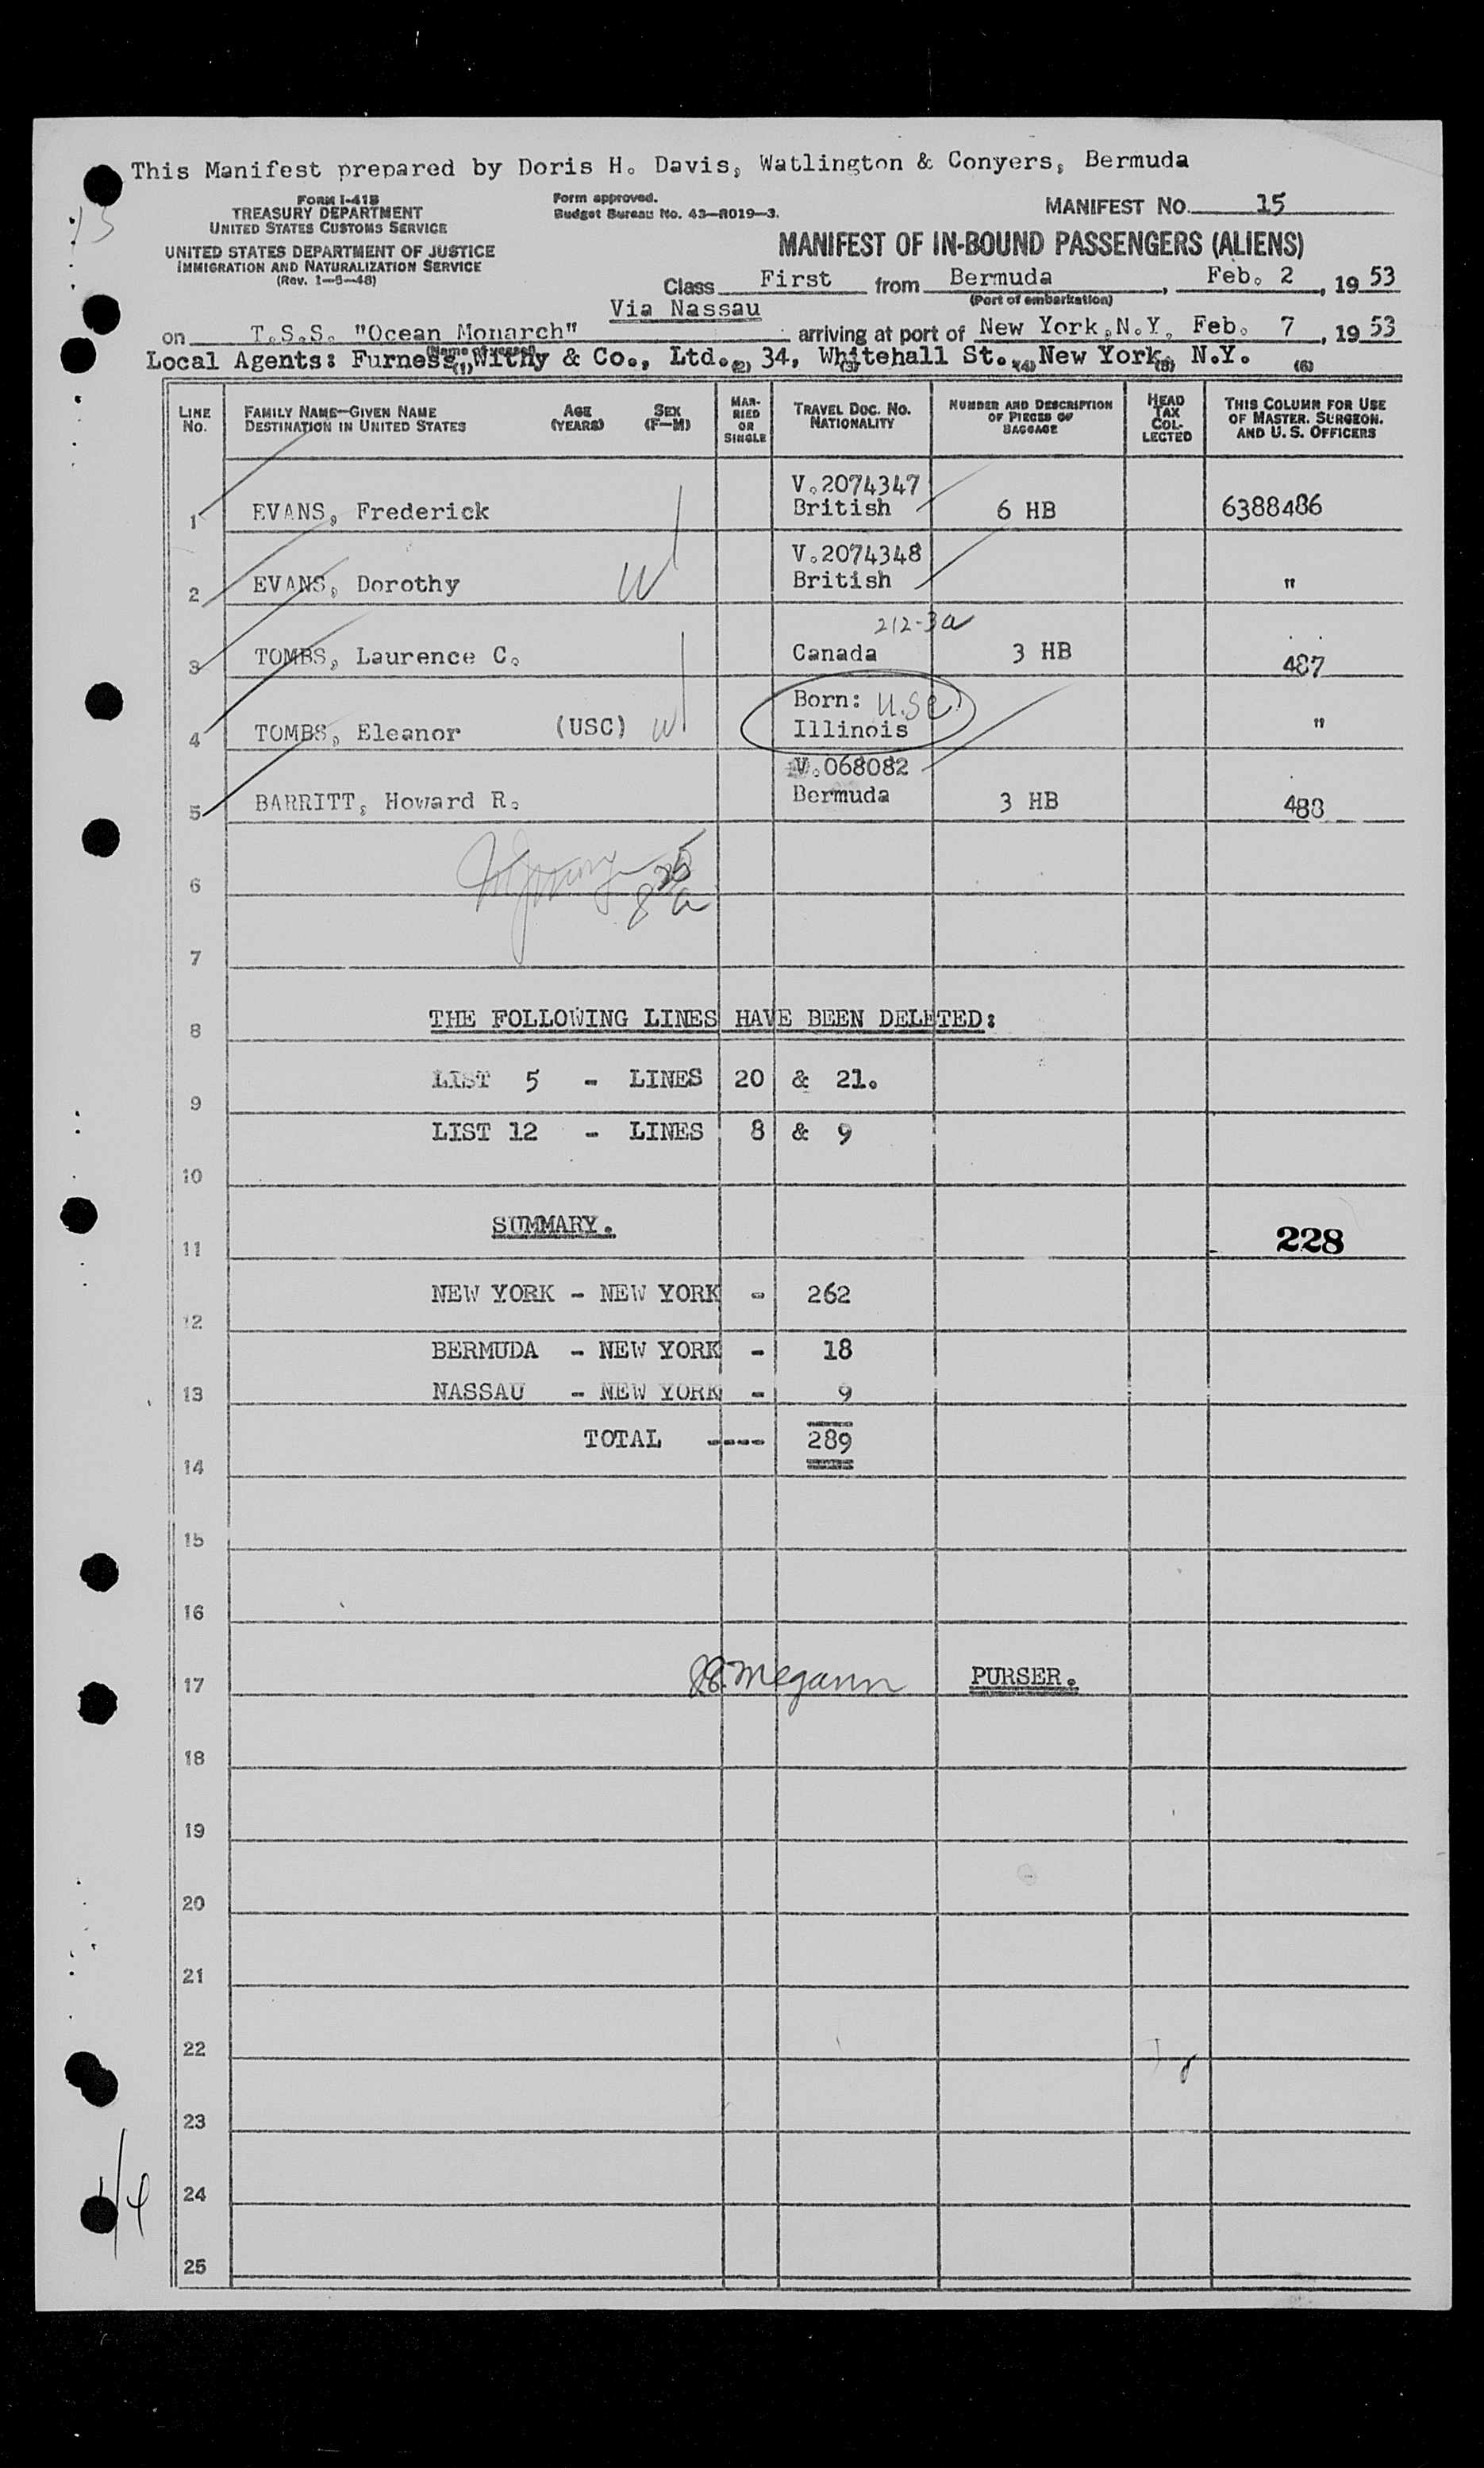 This Manifest prepared by Doris H. Davis, Watlington & Conyers, Bermuda
13
FORM I-418
TREASURY DEPARTMENT
UNITED STATES CUSTOMS SERVICE
UNITED STATES DEPARTMENT OF JUSTICE
IMMIGRATION AND NATURALIZATION SERVICE
Form approved.
Budget Bureau No. 43—R019—3.
MANIFEST NO. 15
MANIFEST OF IN-BOUND PASSENGERS (ALIENS)
Class First from Bermuda, Feb. 2, 1953
(Port of embarkation)
Via Nassau
on T.S.S. "Ocean Monarch" arriving at port of New York, N.Y. Feb. 7, 1953
(Name of vessel)
Local Agents: Furness, Withy & Co., Ltd., 34, Whitehall St., New York, N.Y.
(1) (2) (3) (4) (5) (6)
LINE NO. FAMILY NAME—GIVEN NAME DESTINATION IN UNITED STATES AGE (YEARS) SEX (F—M) MARRIED OR SINGLE TRAVEL DOC. NO. NATIONALITY NUMBER AND DESCRIPTION OF PIECES OF BAGGAGE HEAD TAX COLLECTED THIS COLUMN FOR USE OF MASTER, SURGEON, AND U. S. OFFICERS
V.2074347
1 EVANS, Frederick British 6 HB 6388486
V.2074348
2 EVANS, Dorothy W British "
212-3a
3 TOMBS, Laurence C. Canada 3 HB 487
Born: U.S.C.
4 TOMBS, Eleanor (USC) W Illinois "
V.068082
5 BARRITT, Howard R. Bermuda 3 HB 488
6
7
8 THE FOLLOWING LINES HAVE BEEN DELETED:
LIST 5 - LINES 20 & 21.
9
LIST 12 - LINES 8 & 9
10
SUMMARY.
11 228
NEW YORK - NEW YORK - 262
12
BERMUDA - NEW YORK - 18
13 NASSAU - NEW YORK - 9
TOTAL ---- 289
14
15
16
17 Megann PURSER.
18
19
20
21
22
23
24
25